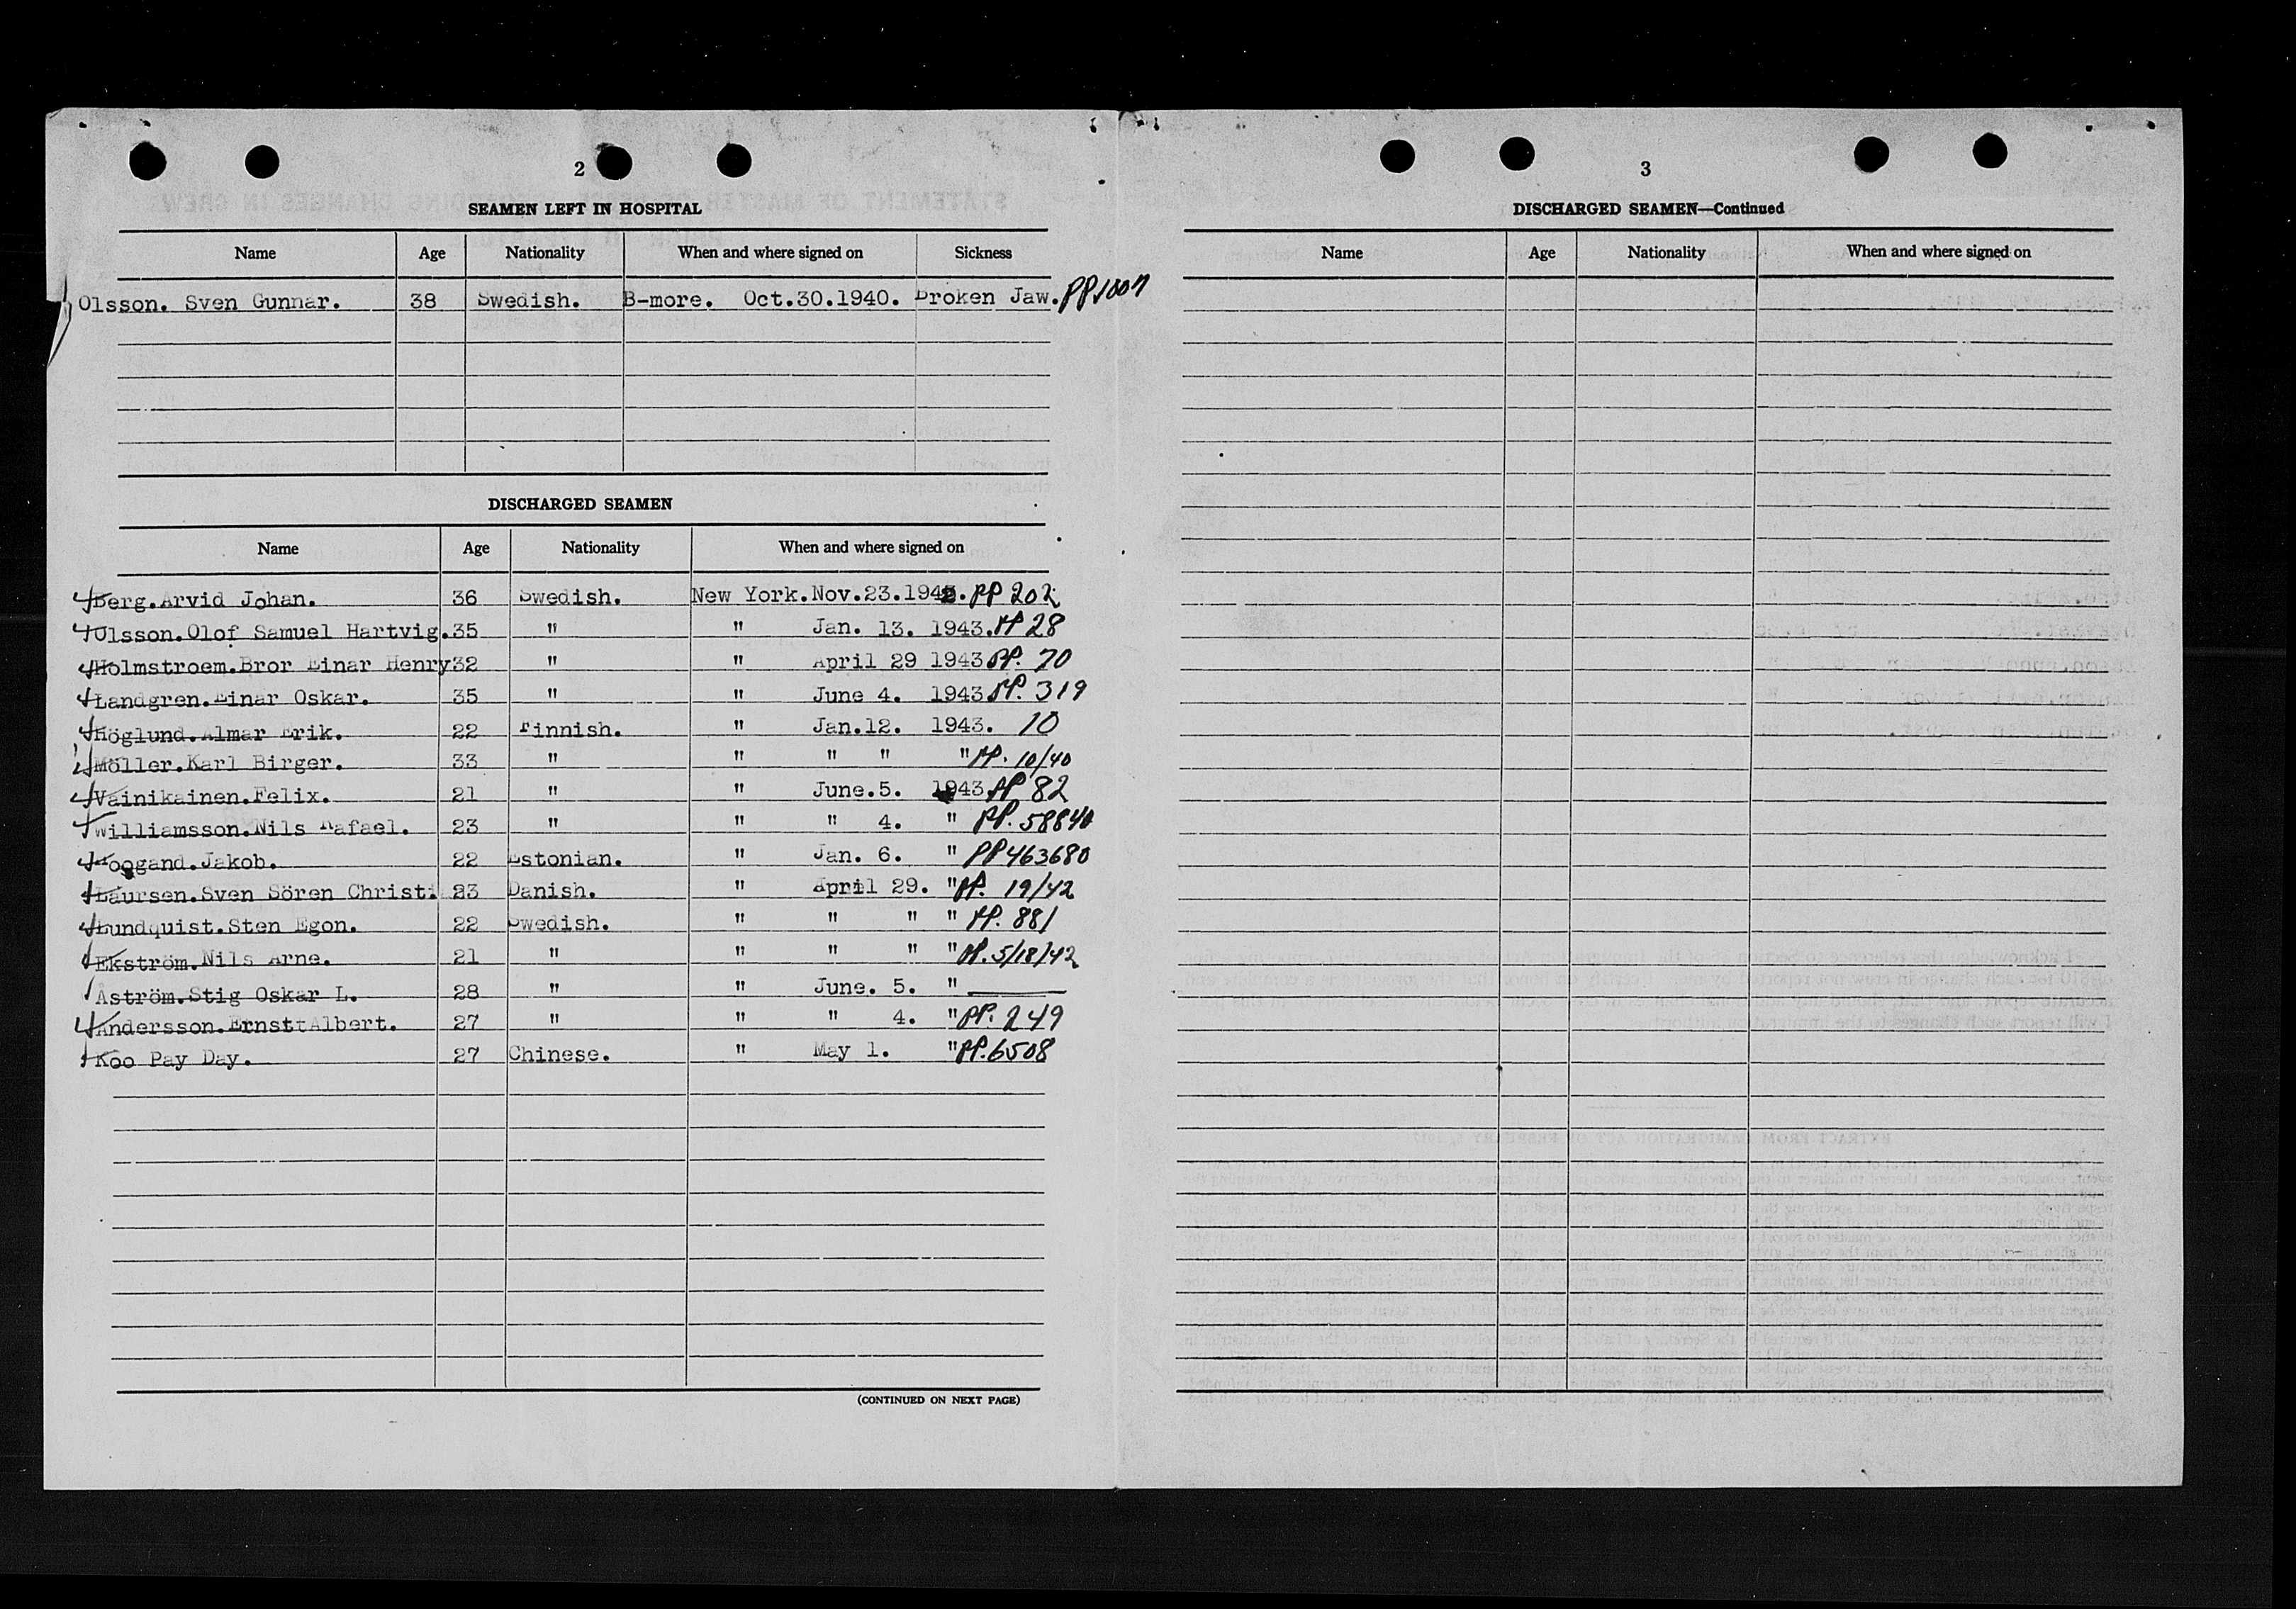 2
SEAMEN LEFT IN HOSPITAL
Name Age Nationality When and where signed on Sickness
Olsson. Sven Gunnar. 38 Swedish. B-more. Oct.30.1940. Broken Jaw. PP
DISCHARGED SEAMEN
Name Age Nationality When and where signed on
Berg.Arvid Johan. 36 Swedish. New York.Nov.23.1942. PP 202
Olsson.Olof Samuel Hartvig. 35 " " Jan. 13. 1943. PP 28
Holmstroem.Bror Einar Henry 32 " " April 29 1943 PP. 70
Landgren.Einar Oskar. 35 " " June 4. 1943 PP. 319
Höglund.Almar Erik. 22 Finnish. " Jan.12. 1943. 10
Möller.Karl Birger. 33 " " " " " PP. 10/40
Vainikainen.Felix. 21 " " June.5. 1943 PP 82
Williamsson.Nils Rafael. 23 " " " 4. " PP. 58840
Jakob. 22 Estonian. " Jan. 6. " PP 463680
Laursen.Sven Sören Christ. 23 Danish. " April 29. " PP. 19/42
Lundquist.Sten Egon. 22 Swedish. " " " " PP. 881
Ekström.Nils Arne. 21 " " " " " PP. 5/18/42
Åström.Stig Oskar L. 28 " " June. 5. "
Andersson.Ernst Albert. 27 " " " 4. " PP. 249
Koo Pay Day. 27 Chinese. " May 1. " PP. 6508
(CONTINUED ON NEXT PAGE)
3
DISCHARGED SEAMEN—Continued
Name Age Nationality When and where signed on